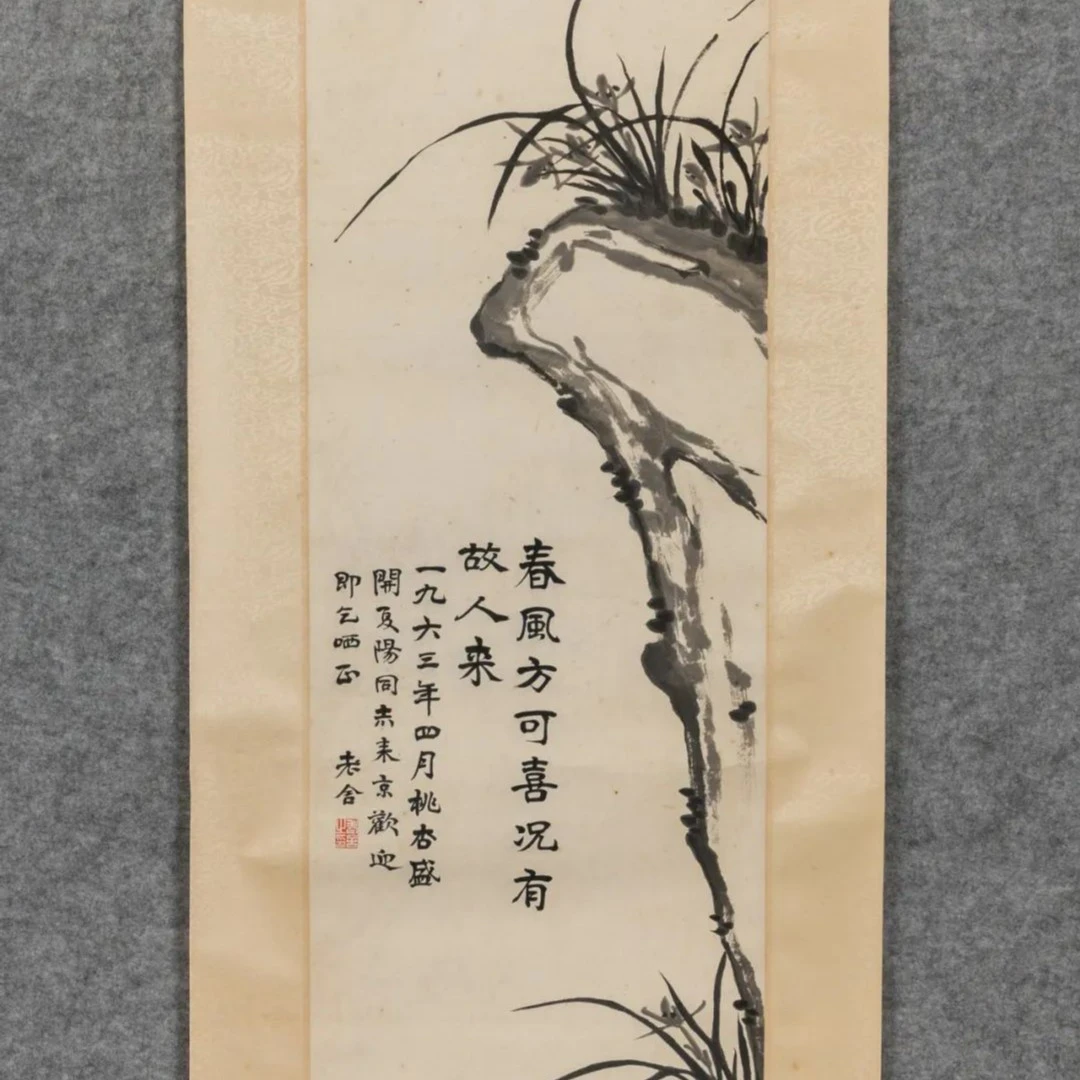 春風方可喜况有
故人来
一九六三年四月桃杏盛
開夏陽同志来京歡迎
即乞哂正
老舍